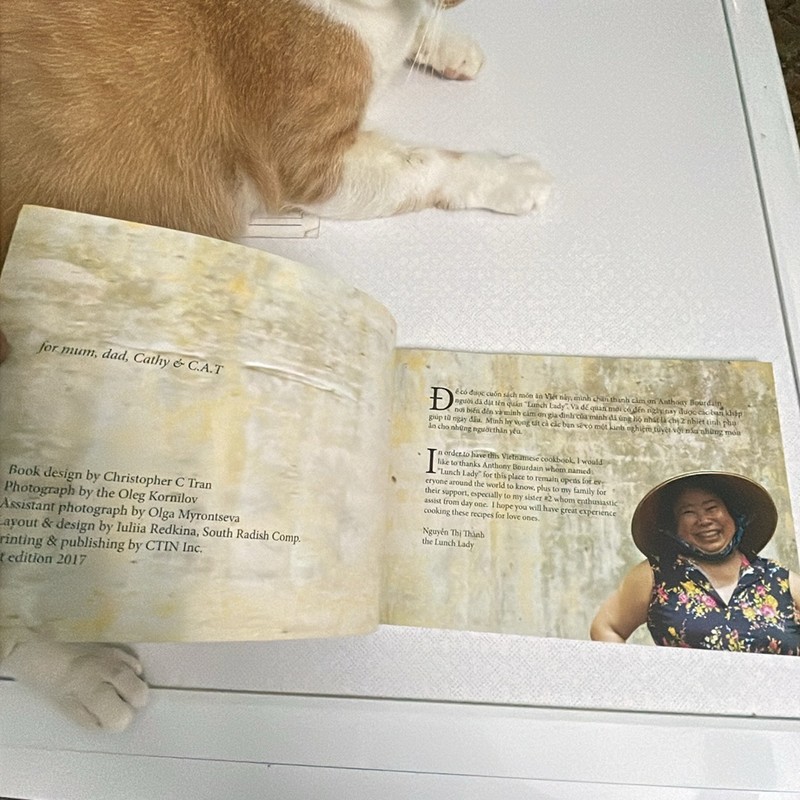 for mum, dad, Cathy & C.A.T
Book design by Christopher C Tran
Photograph by the Oleg Kornilov
Assistant photograph by Olga Myrontseva
ayout & design by Iuliia Redkina, South Radish Comp.
rinting & publishing by CTIN Inc.
t edition 2017
Để có được cuốn sách món ăn Việt này, mình chân thành cám ơn Anthony Bourdain,
người đã đặt tên quán "Lunch Lady". Và để quán mới có đến ngày nay được các bạn khắp
nơi biến đến và mình cám ơn gia đình của mình đã ủng hộ nhất là chị 2 nhiệt tình phụ
giúp từ ngày đầu. Mình hy vọng tất cả các bạn sẽ có một kinh nghiệm tuyệt vời nấu những món
ăn cho những người thân yêu.
In order to have this Vietnamese cookbook, I would
like to thanks Anthony Bourdain whom named
"Lunch Lady" for this place to remain opens for ev-
eryone around the world to know, plus to my family for
their support, especially to my sister #2 whom enthusiastic
assist from day one. I hope you will have great experience
cooking these recipes for love ones.
Nguyễn Thị Thành
the Lunch Lady